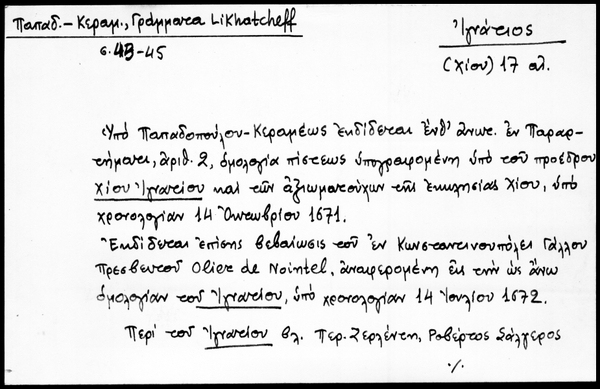 Παπαδ.-Κεραμ., Γράμματα Likhatcheff
σ. 43-45
Ἰγνάτιος
(Χίου) 17 αἰ.
Ὑπό Παπαδοπούλου-Κεραμέως ἐκδίδεται ἔνθ' ἄνωτ. ἐν Παραρ-
τήματι, ἀριθ. 2, ὁμολογία πίστεως ὑπογραφομένη ὑπό τοῦ προέδρου
Χίου Ἰγνατίου καί τῶν ἀξιωματούχων τῆς ἐκκλησίας Χίου, ὑπό
χρονολογίαν 14 Ὀκτωβρίου 1671.
Ἐκδίδεται ἐπίσης βεβαίωσις τοῦ ἐν Κωνσταντινουπόλει Γάλλου
Πρεσβευτοῦ Olier de Nointel, ἀναφερομένη εἰς τήν ὡς ἄνω
ὁμολογίαν τοῦ Ἰγνατίου, ὑπό χρονολογίαν 14 Ἰουλίου 1672.
Περί τοῦ Ἰγνατίου βλ. Περ. Ζερλέντη, Ροβέρτος Σάλγερος
./.